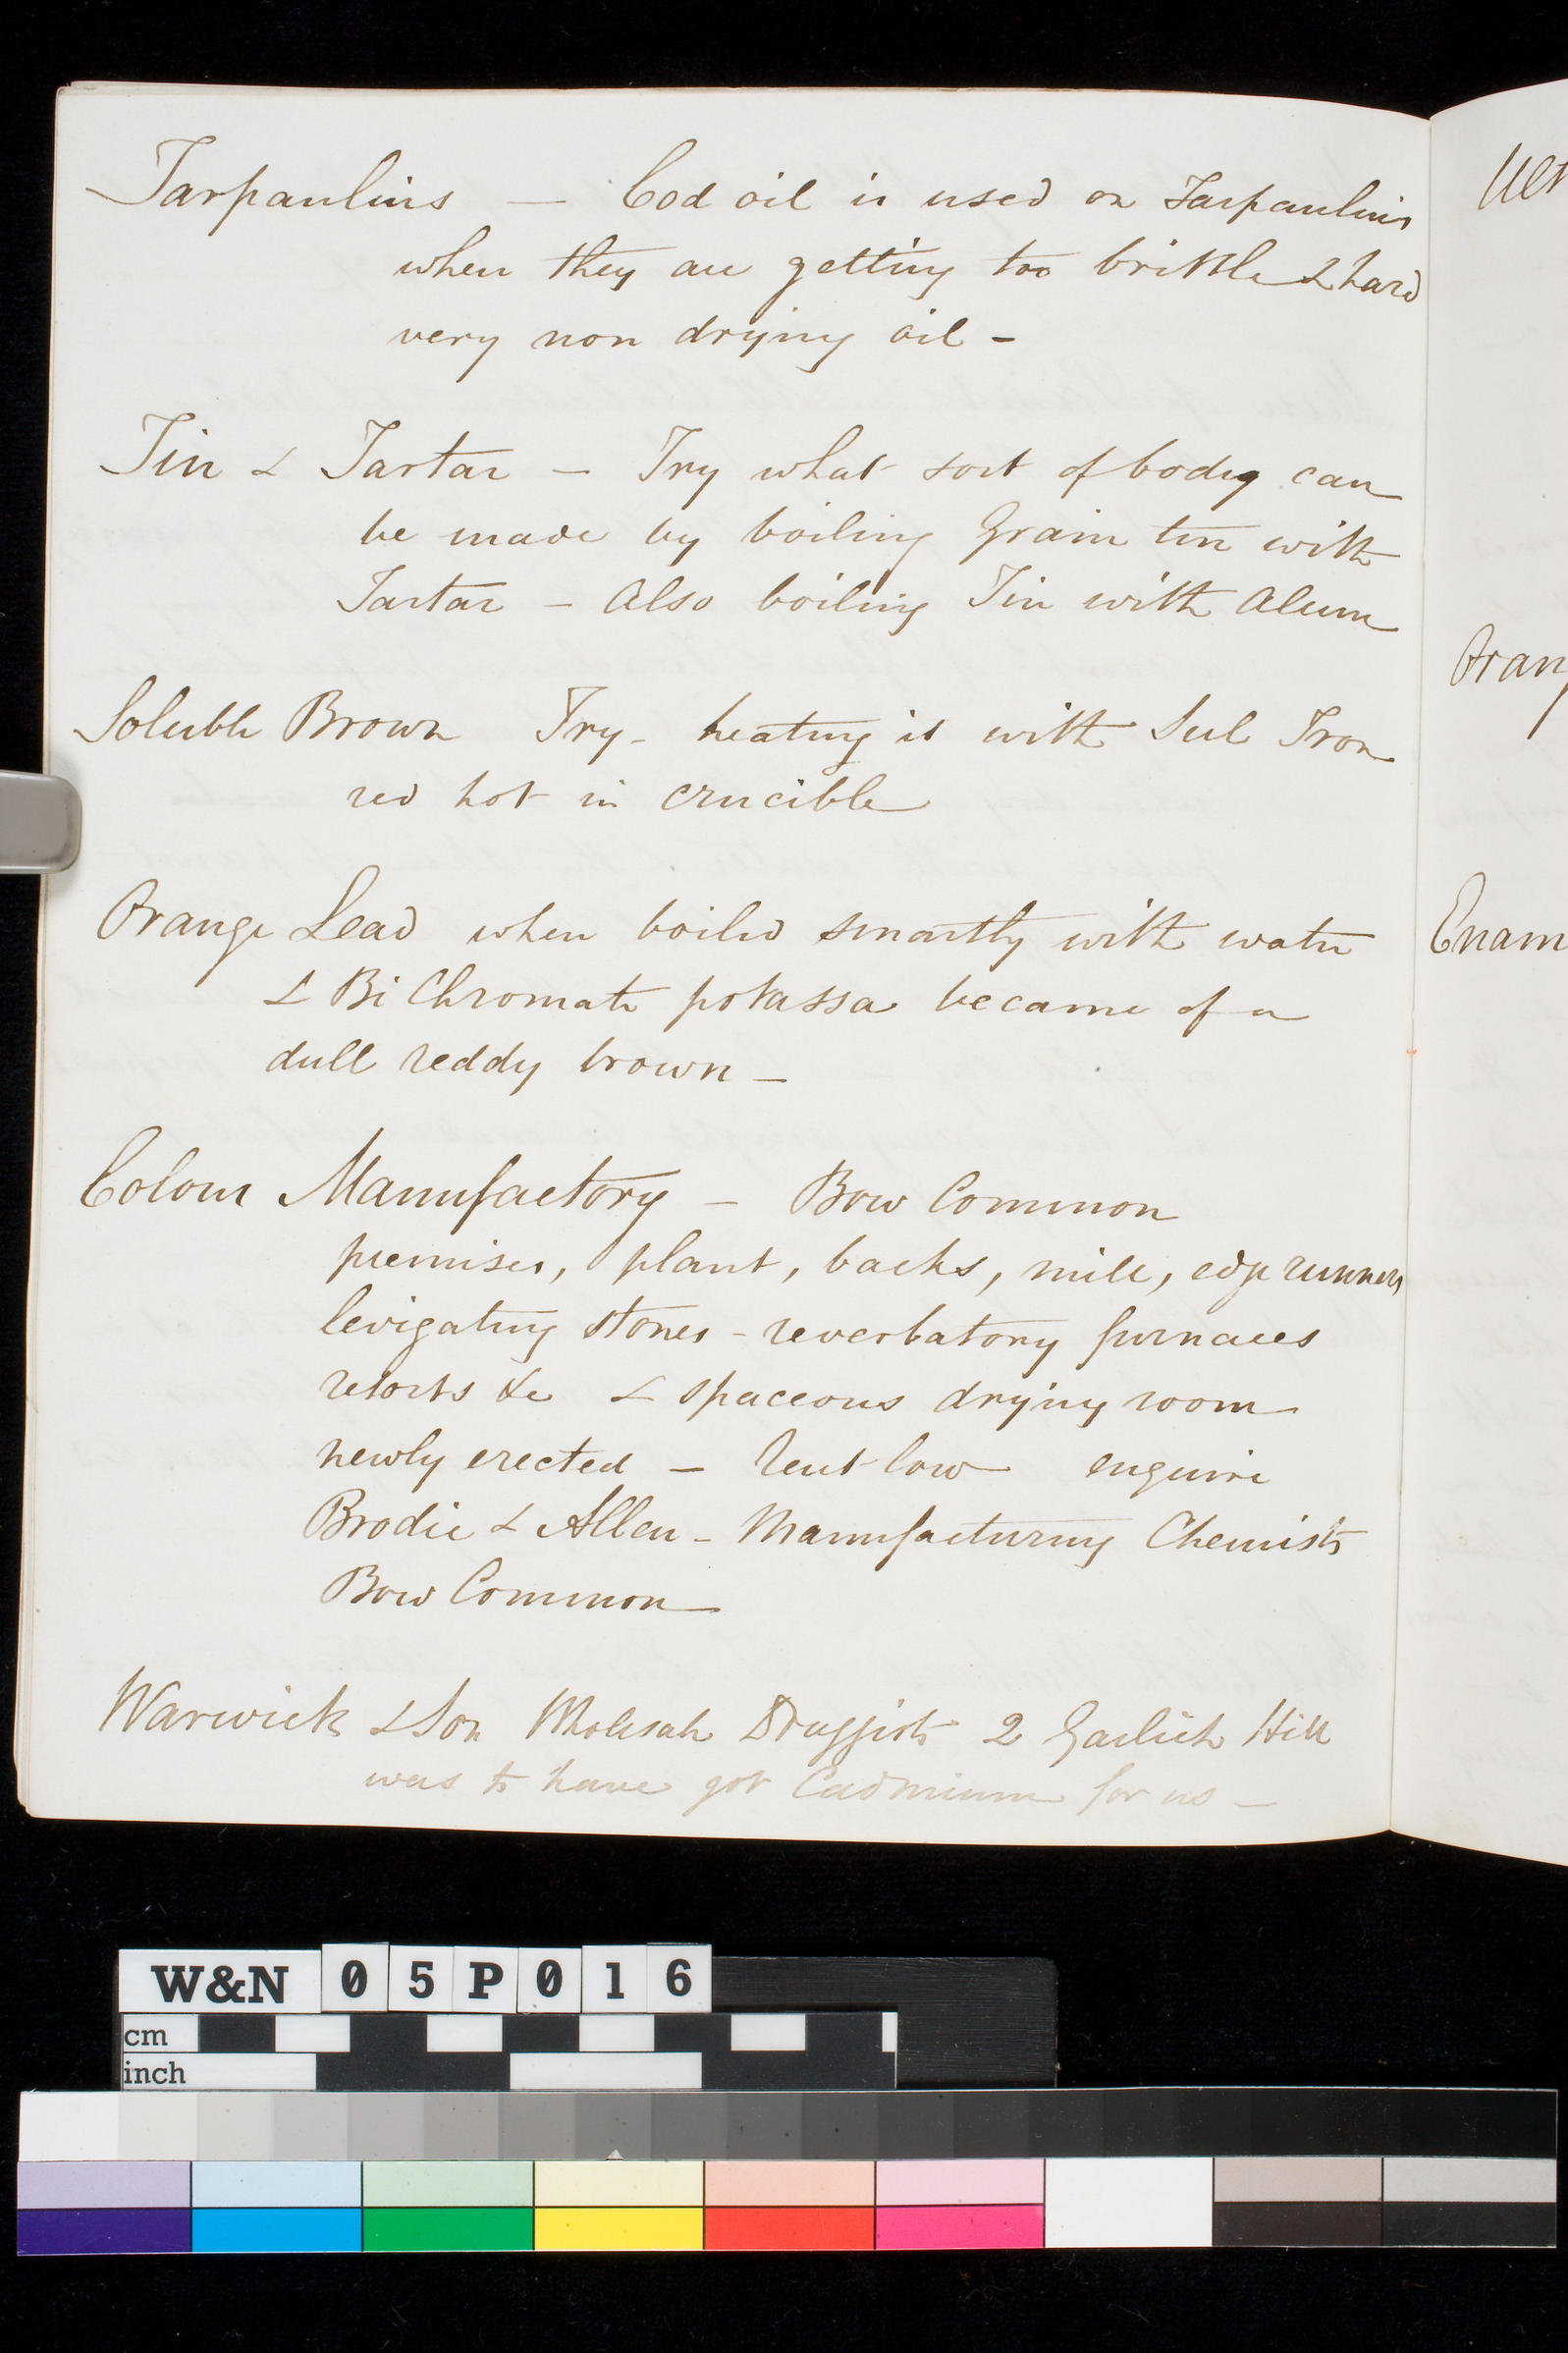 Tarpaulins — Cod oil is used on Tarpaulins
when they are getting too brittle & hard
very non drying oil -
Tin & Tartar — Try what sort of body can
be made by boiling Grain tin with
Tartar — Also boiling Tin with Alum
Soluble Brown Try - heating it with Sul Iron
red hot in crucible
Orange Lead when boiled smartly with water
& Bi Chromate potassa became of a
dull reddy brown —
Colour Manufactory — Bow Common
premises, plant, backs, mill, edge runners
levigating stones - reverbatory furnaces
retorts &c & spaceous drying room
newly erected — Rent low enquire
Brodie & Allen - Manufacturing Chemists
Bow Common
Warwick & Son Wholesale Druggists 2 Garlick Hill
was to have got Cadmium for us —
Ult
Orang
Enam
W&N 05P016
cm
inch